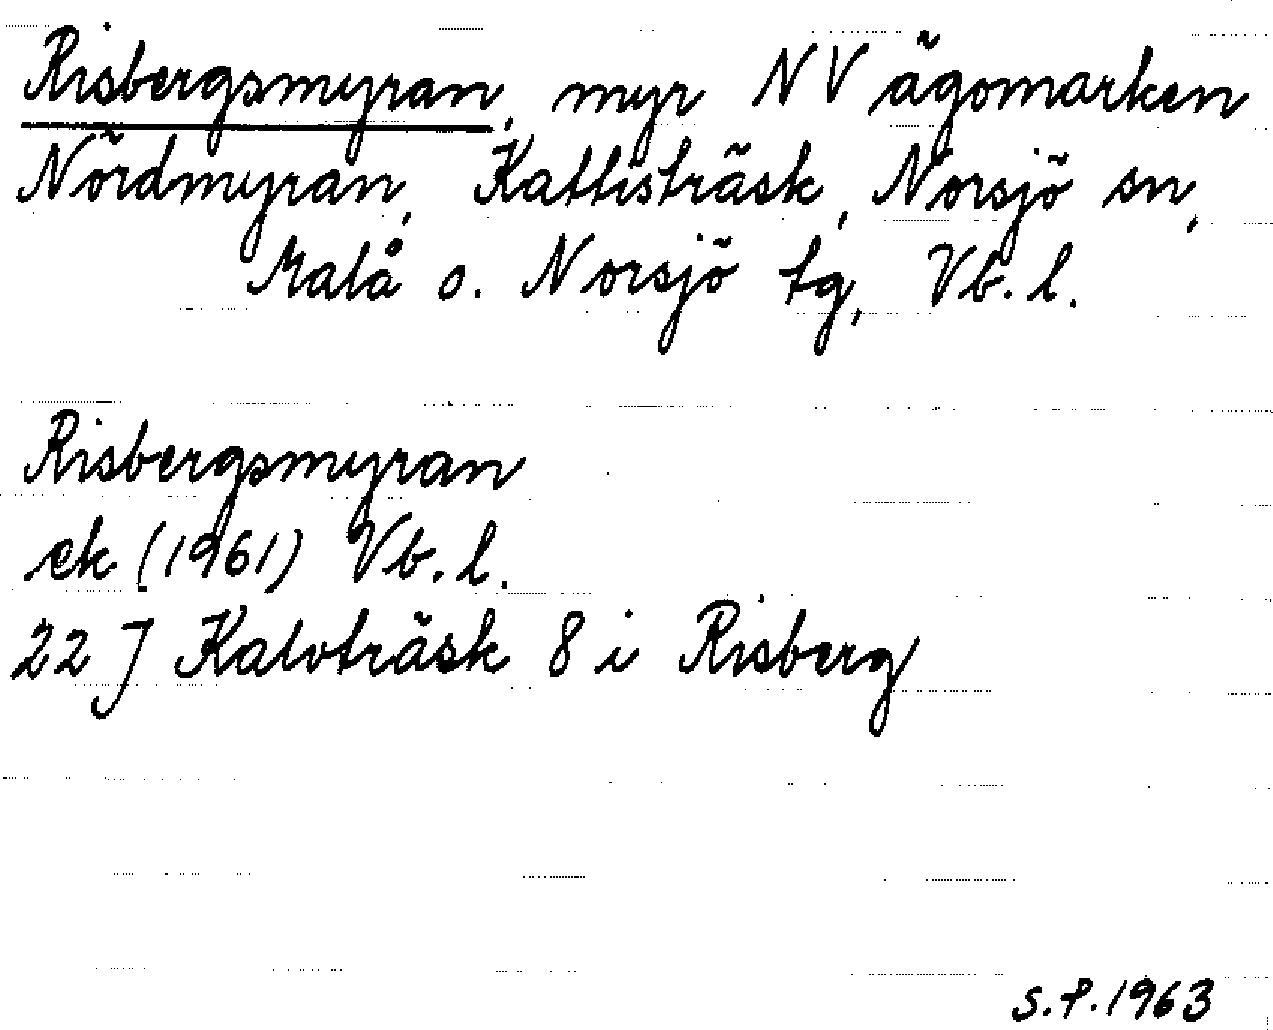 Risbergsmyran, myr NV ägomarken
Nördmyran, Kattisträsk, Norsjö sn,
Malå o. Norsjö tg, Vb. l.
Risbergsmyran
ek (1961) Vb. l.
22 J Kalvträsk 8 i Risberg
S.P. 1963